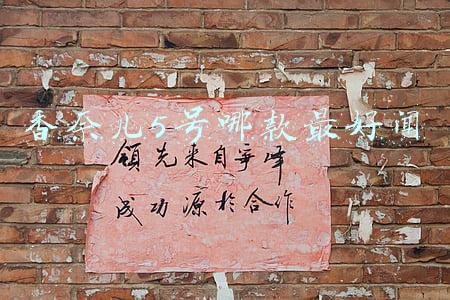 香奈儿5号哪款最好闻
领先来自争峰
成功源於合作